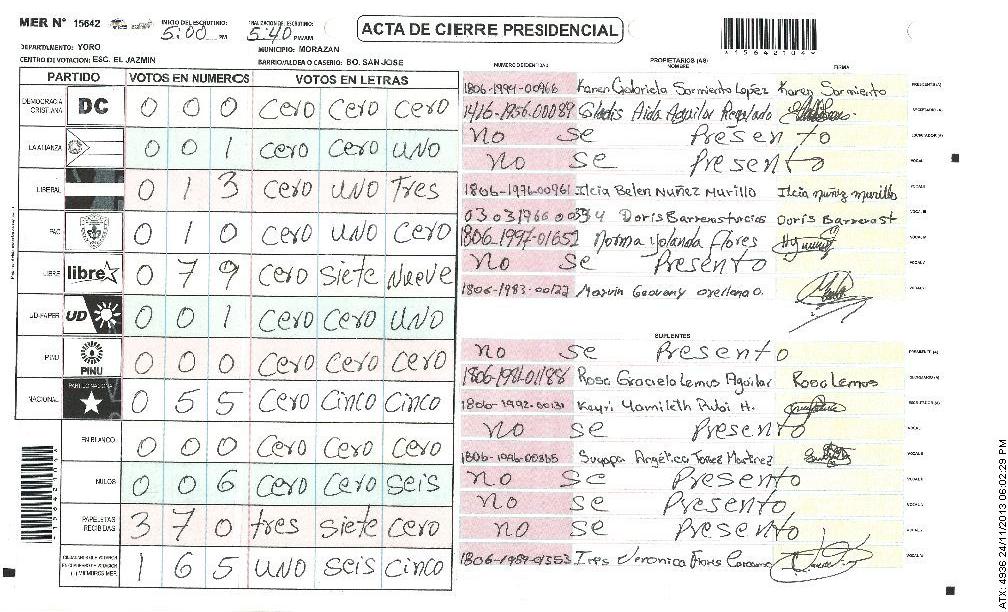 MER Nº 15642
INICIO DEL ESCRUTINIO: 5:00 PM
FINALIZACION DEL ESCRUTINIO: 5:40 PM/AM
ACTA DE CIERRE PRESIDENCIAL
DEPARTAMENTO: YORO
MUNICIPIO: MORAZAN
CENTRO DE VOTACION: ESC. EL JAZMIN
BARRIO/ALDEA O CASERIO: BO. SAN JOSE
PARTIDO VOTOS EN NUMEROS VOTOS EN LETRAS
DEMOCRACIA CRISTIANA DC 0 0 0 cero cero cero
LA ALIANZA 0 0 1 cero cero uno
LIBERAL 0 1 3 cero uno Tres
PAC 0 1 0 cero uno cero
LIBRE libre 0 7 9 cero siete nueve
UD-FAPER UD 0 0 1 cero cero uno
PINU PINU 0 0 0 cero cero cero
NACIONAL PARTIDO NACIONAL 0 5 5 cero cinco cinco
EN BLANCO 0 0 0 cero cero cero
NULOS 0 0 6 cero cero seis
PAPELETAS RECIBIDAS 3 7 0 tres siete cero
1 6 5 uno seis cinco
NUMERO IDENTIDAD PROPIETARIOS (AS) NOMBRE FIRMA
1806-1994-00966 Karen Gabriela Sarmiento Lopez Karen Sarmiento PRESIDENTE (A)
1416-1956-00089 Gladis Aida Aguilar Regalado SECRETARIO (A)
no se Presento ESCRUTADOR (A)
no se Presento VOCAL I
1806-1976-00961 Ilcia Belen Nuñez Murillo Ilcia nuñez murillo VOCAL II
Doris Barrera VOCAL III
1806-1997-01652 Norma Yolanda Flores
no se Presento VOCAL V
1806-1983-00122 Marvin Geovany orellana O.
SUPLENTES
no se Presento PRESIDENTE (A)
1806-1981-01188 Rosa Graciela Lemus Aguilar Rosa Lemus SECRETARIO (A)
1806-1992-00131 Keyri Yamileth Rubi H. ESCRUTADOR (A)
no se Presento VOCAL I
1806-1996-00365 Suyapa Angélica Torrez Martinez VOCAL II
no se Presento
no se Presento
no se Presento
1806-1989-01353
ATX: 4936 24/11/2013 06:02:29 PM